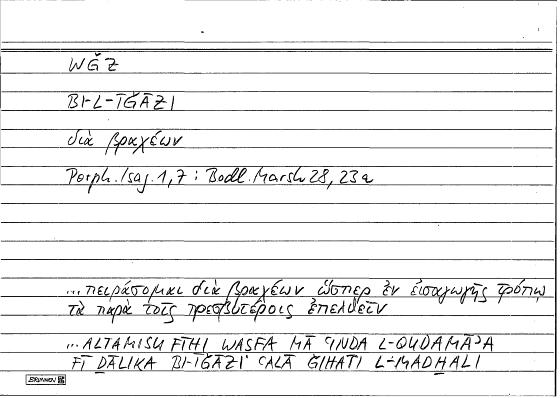 WǦZ
BI-L-ĪǦĀZI
διὰ βραχέων
Porph. Isag. 1,7 : Bodl. Marsh 28, 23a
...πειράσομαι διὰ βραχέων ὥσπερ ἐν εἰσαγωγῆς τρόπῳ
τὰ παρὰ τοῖς πρεσβυτέροις ἐπελθεῖν
...ALTAMISU FĪHI WASFA MĀ ʿINDA L-QUDAMĀʾA
FĪ ḎĀLIKA BI-ĪǦĀZI ʿALĀ ǦIHATI L-MADḪALI
BRUNNEN